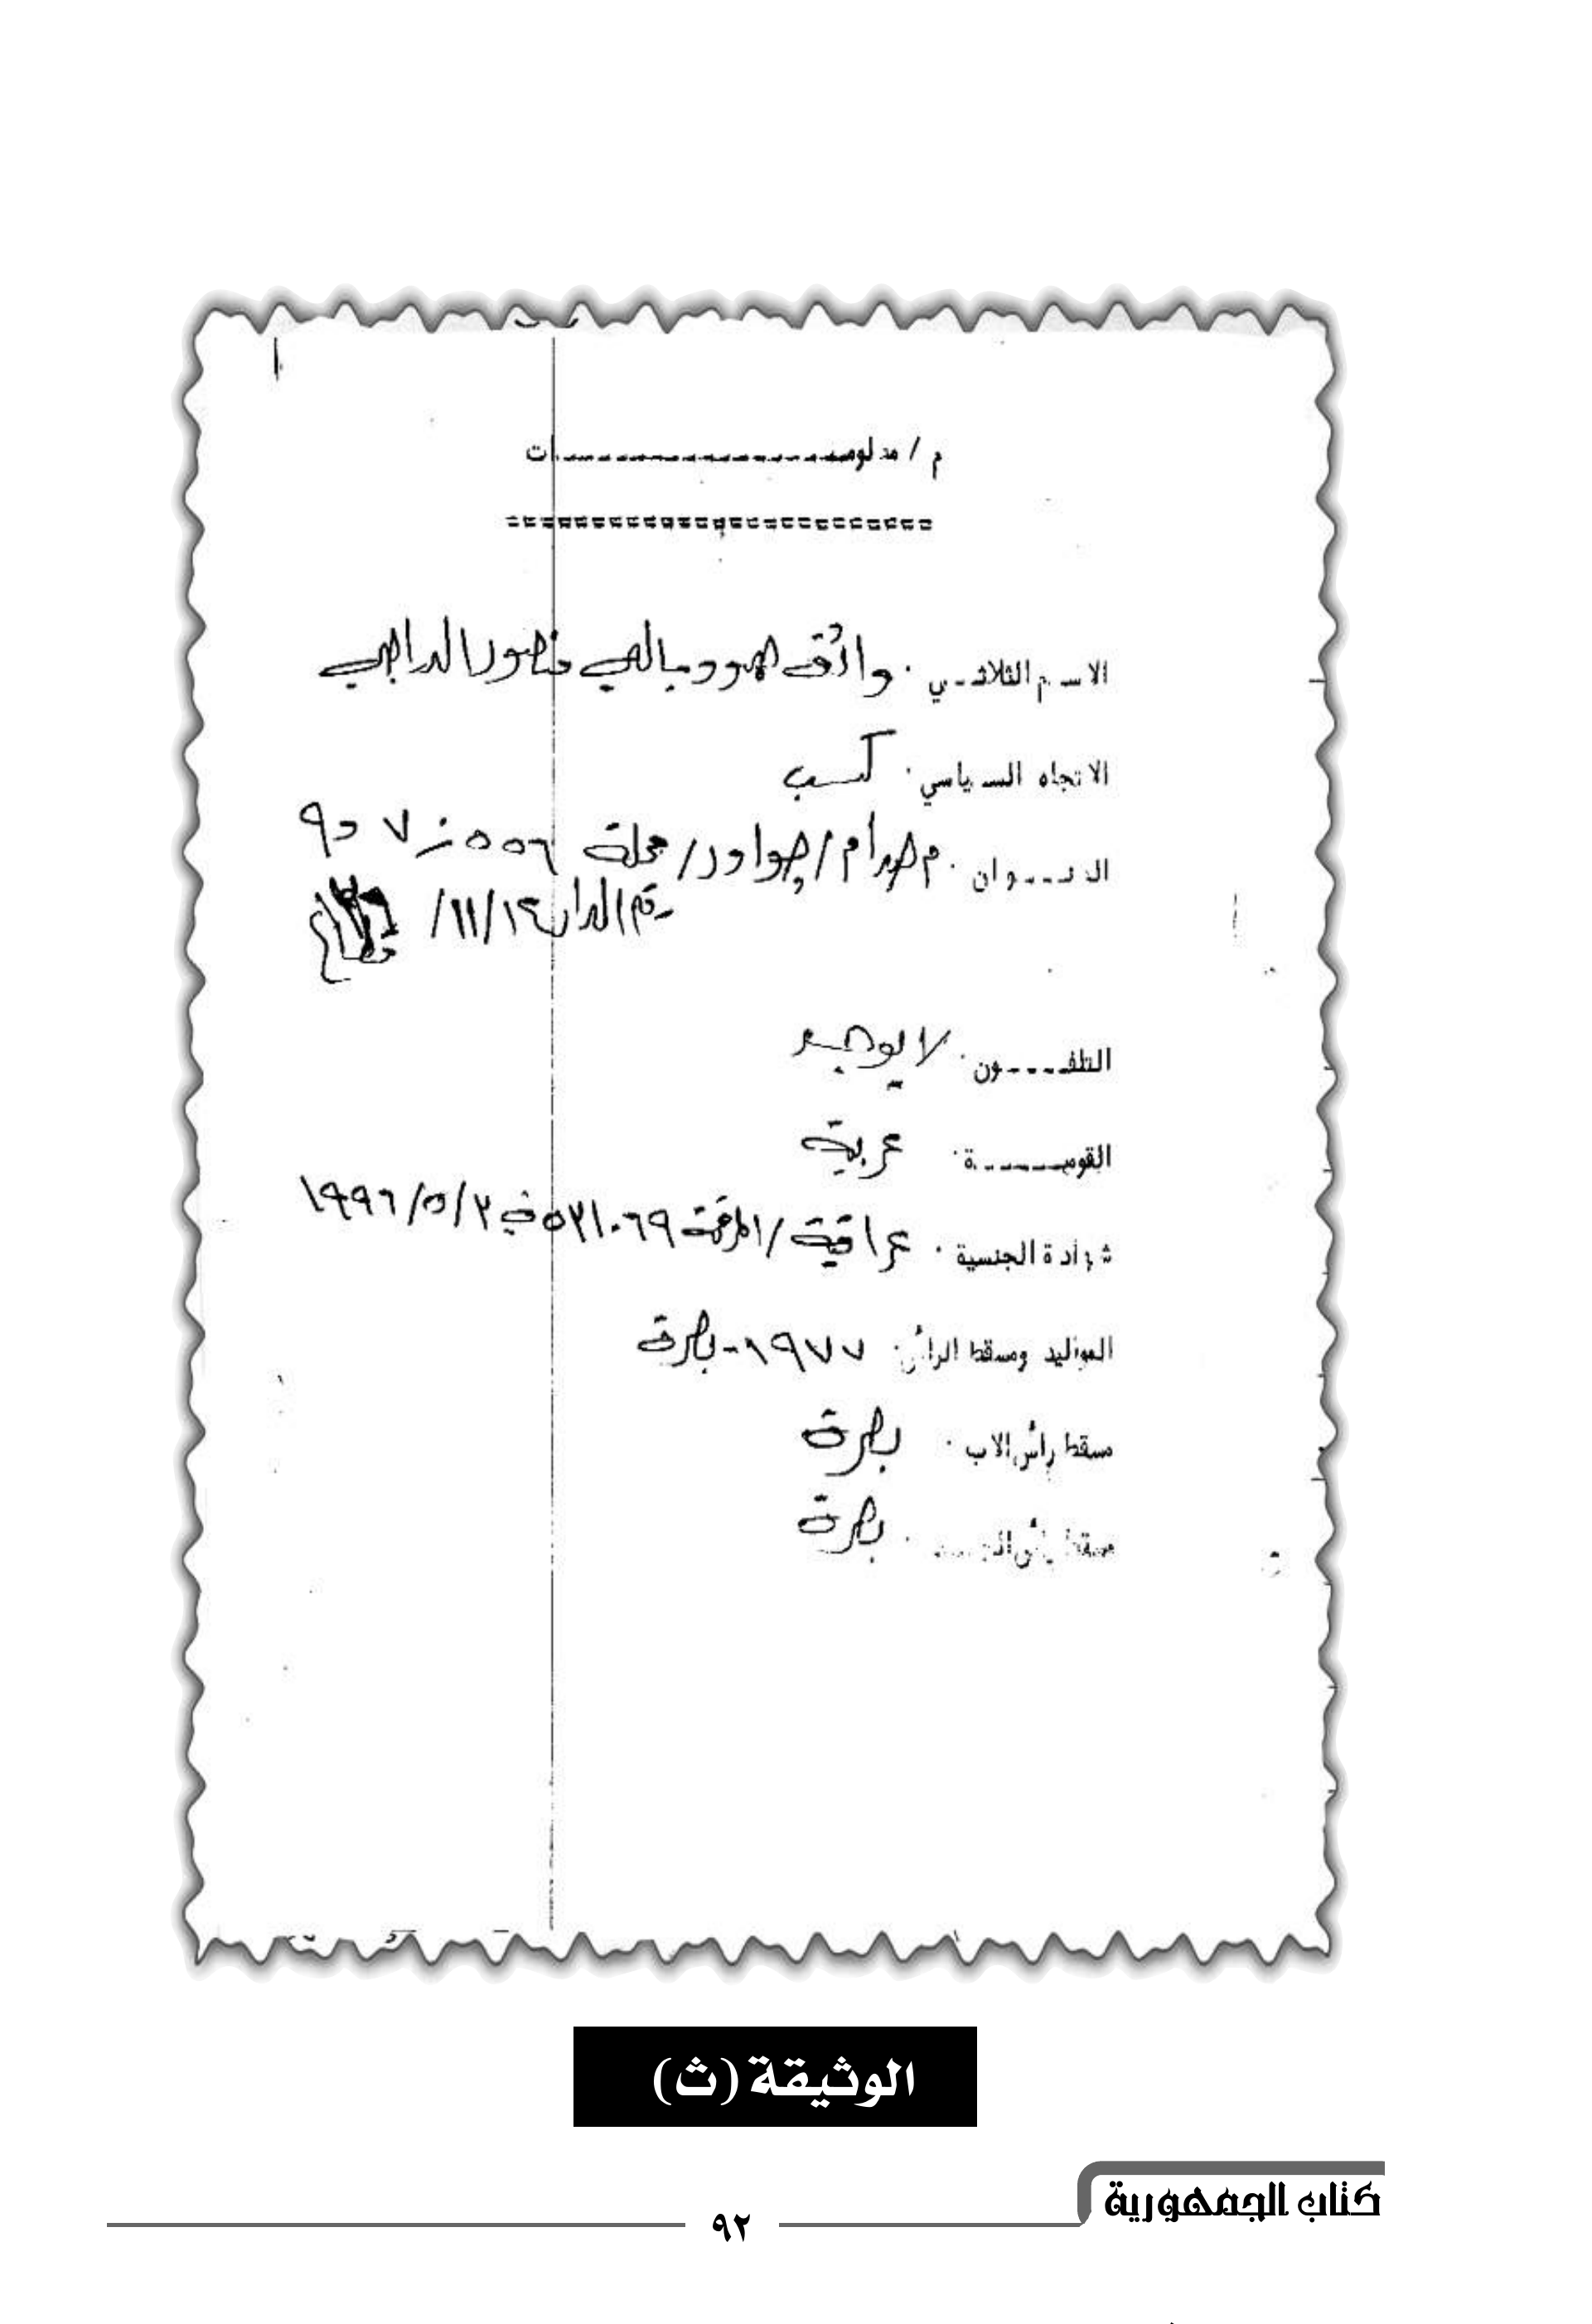 م / معلومـــــــــــات
الاسم الثلاثـي . واثق حمود منصور الدراجي
الاتجاه السياسي . كسب
العنـــوان . م صدام / جوادر / محلة ٥٥٦ ز ٧ د ٩
رقم الدار ١١/١٤/
التلفـــون . لا يوجد
القوميـــة . عربية
شهادة الجنسية . عراقية / المرقمة ٥٢١٠٦٩ في ١٩٩٦/٥/٢
المواليد ومسقط الرأس . ١٩٧٧ - بصرة
مسقط رأس الاب . بصرة
مسقط رأس . بصرة
الوثيقة (ث)
كتاب الجمهورية
٩٢